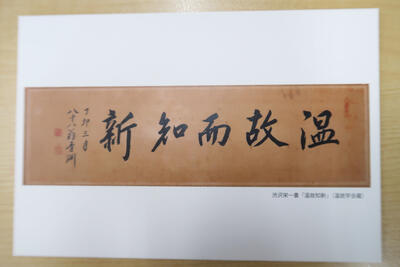 温故而知新
丁卯三月
八十八翁青淵
渋沢栄一書「温故知新」（温故学会蔵）